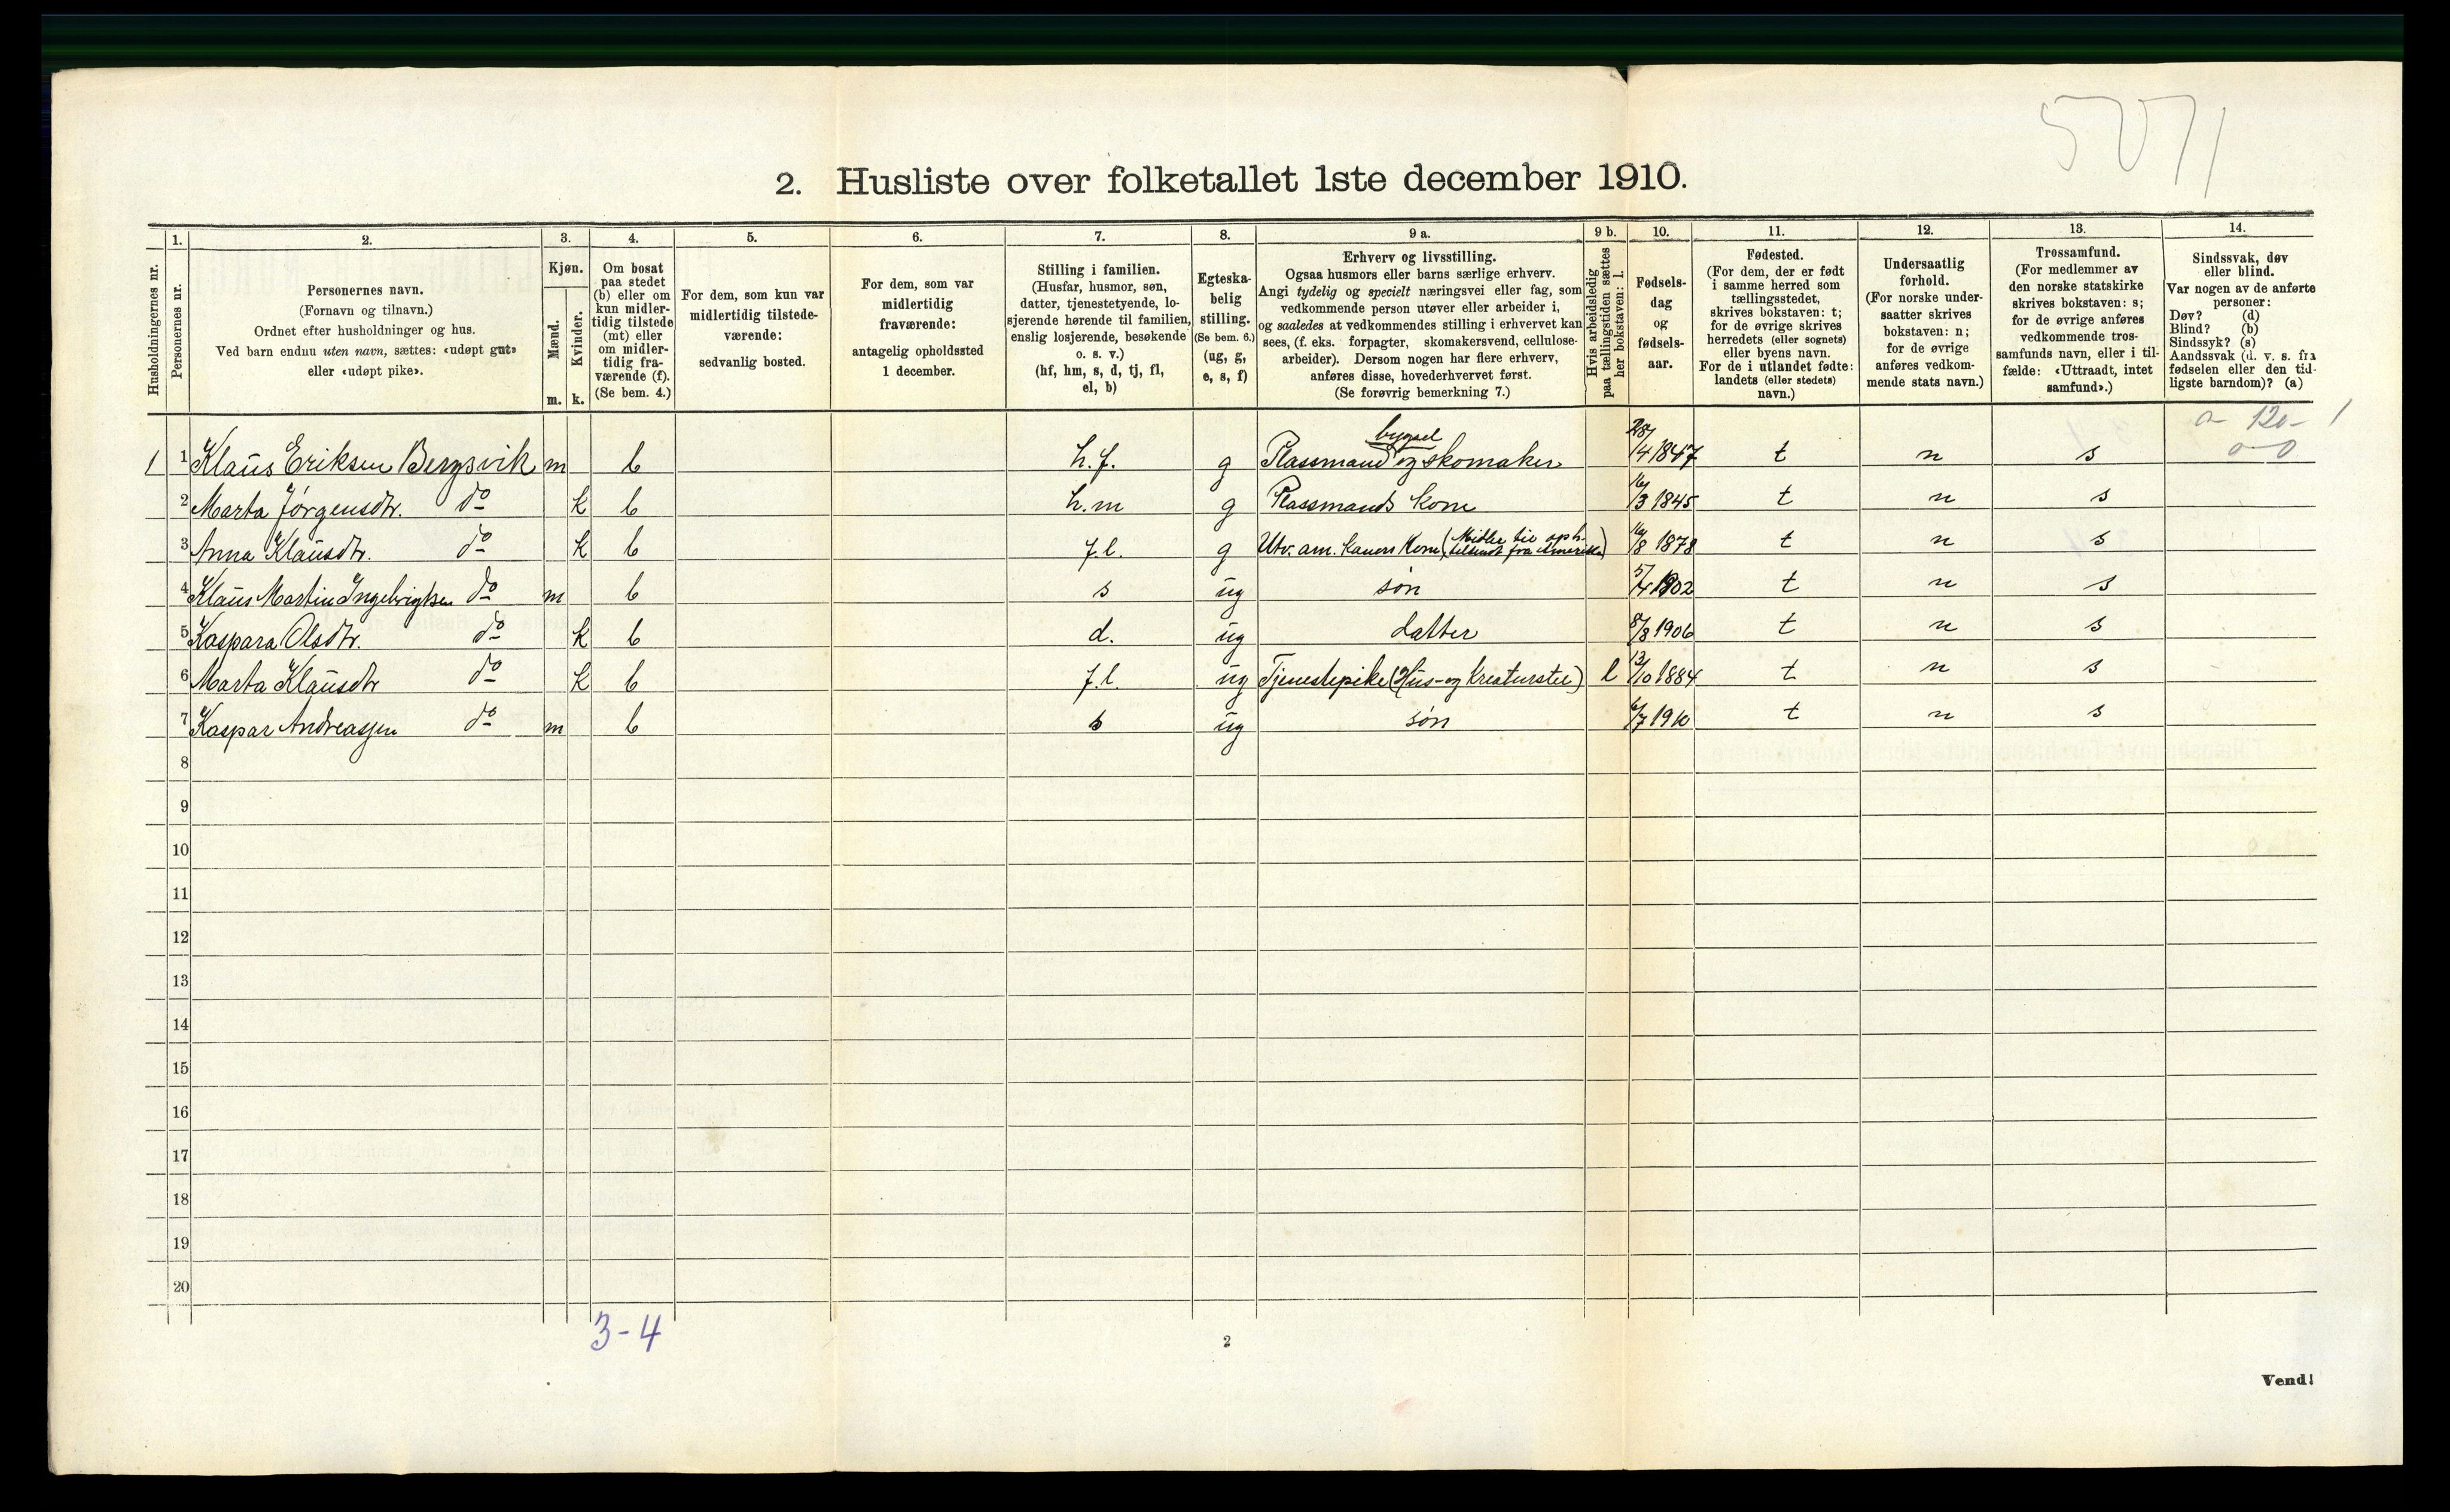 5071
2. Husliste over folketallet 1ste december 1910.
Husholdningernes nr.
1. Personernes nr.
2. Personernes navn. (Fornavn og tilnavn.) Ordnet efter husholdninger og hus. Ved barn endnu uten navn, sættes: «udøpt gut» eller «udøpt pike».
3. Kjøn. Mænd. m. Kvinder. k.
4. Om bosat paa stedet (b) eller om kun midlertidig tilstede (mt) eller om midlertidig fraværende (f). (Se bem. 4.)
5. For dem, som kun var midlertidig tilstedeværende: sedvanlig bosted.
6. For dem, som var midlertidig fraværende: antagelig opholdssted 1 december.
7. Stilling i familien. (Husfar, husmor, søn, datter, tjenestetyende, losjerende hørende til familien, enslig losjerende, besøkende o. s. v.) (hf, hm, s, d, tj, fl, el, b)
8. Egteskabelig stilling. (Se bem. 6.) (ug, g, e, s, f)
9 a. Erhverv og livsstilling. Ogsaa husmors eller barns særlige erhverv. Angi tydelig og specielt næringsvei eller fag, som vedkommende person utøver eller arbeider i, og saaledes at vedkommendes stilling i erhvervet kan sees, (f. eks. forpagter, skomakersvend, cellulosearbeider). Dersom nogen har flere erhverv, anføres disse, hovederhvervet først. (Se forøvrig bemerkning 7.)
9 b. Hvis arbeidsledig paa tællingstiden sættes her bokstaven: l.
10. Fødselsdag og fødselsaar.
11. Fødested. (For dem, der er født i samme herred som tællingsstedet, skrives bokstaven: t; for de øvrige skrives herredets (eller sognets) eller byens navn. For de i utlandet fødte: landets (eller stedets) navn.)
12. Undersaatlig forhold. (For norske undersaatter skrives bokstaven: n; for de øvrige anføres vedkommende stats navn.)
13. Trossamfund. (For medlemmer av den norske statskirke skrives bokstaven: s; for de øvrige anføres vedkommende trossamfunds navn, eller i tilfælde: «Uttraadt, intet samfund».)
14. Sindssvak, døv eller blind. Var nogen av de anførte personer: Døv? (d) Blind? (b) Sindssyk? (s) Aandssvak (d. v. s. fra fødselen eller den tidligste barndom)? (a)
0 - 120 - 1
0 - 0
1 1 Klaus Eriksen Bergsvik m b h.f. g Plassmand bygsel og skomaker 28/4 1847 t n s
2 Marta Jørgensdtr. do k b h.m g Plassmands kone 16/3 1845 t n s
3 Anna Klausdtr. do k b f.l. g Utv. am. kaners Kone (Midler til oph. tilsendt fra Amerika) 16/8 1878 t n s
4 Klaus Martin Ingebrigtsen do m b s ug søn 5/4 1902 t n s
5 Kaspara Olsdtr. do k b d. ug datter 8/8 1906 t n s
6 Marta Klausdtr do k b f.l. ug Tjenestepike (Hus- og Kreaturstel) l 13/10 1884 t n s
7 Kaspar Andreassen do m b s ug søn 6/7 1910 t n s
8
9
10
11
12
13
14
15
16
17
18
19
20
3-4
2
Vend!